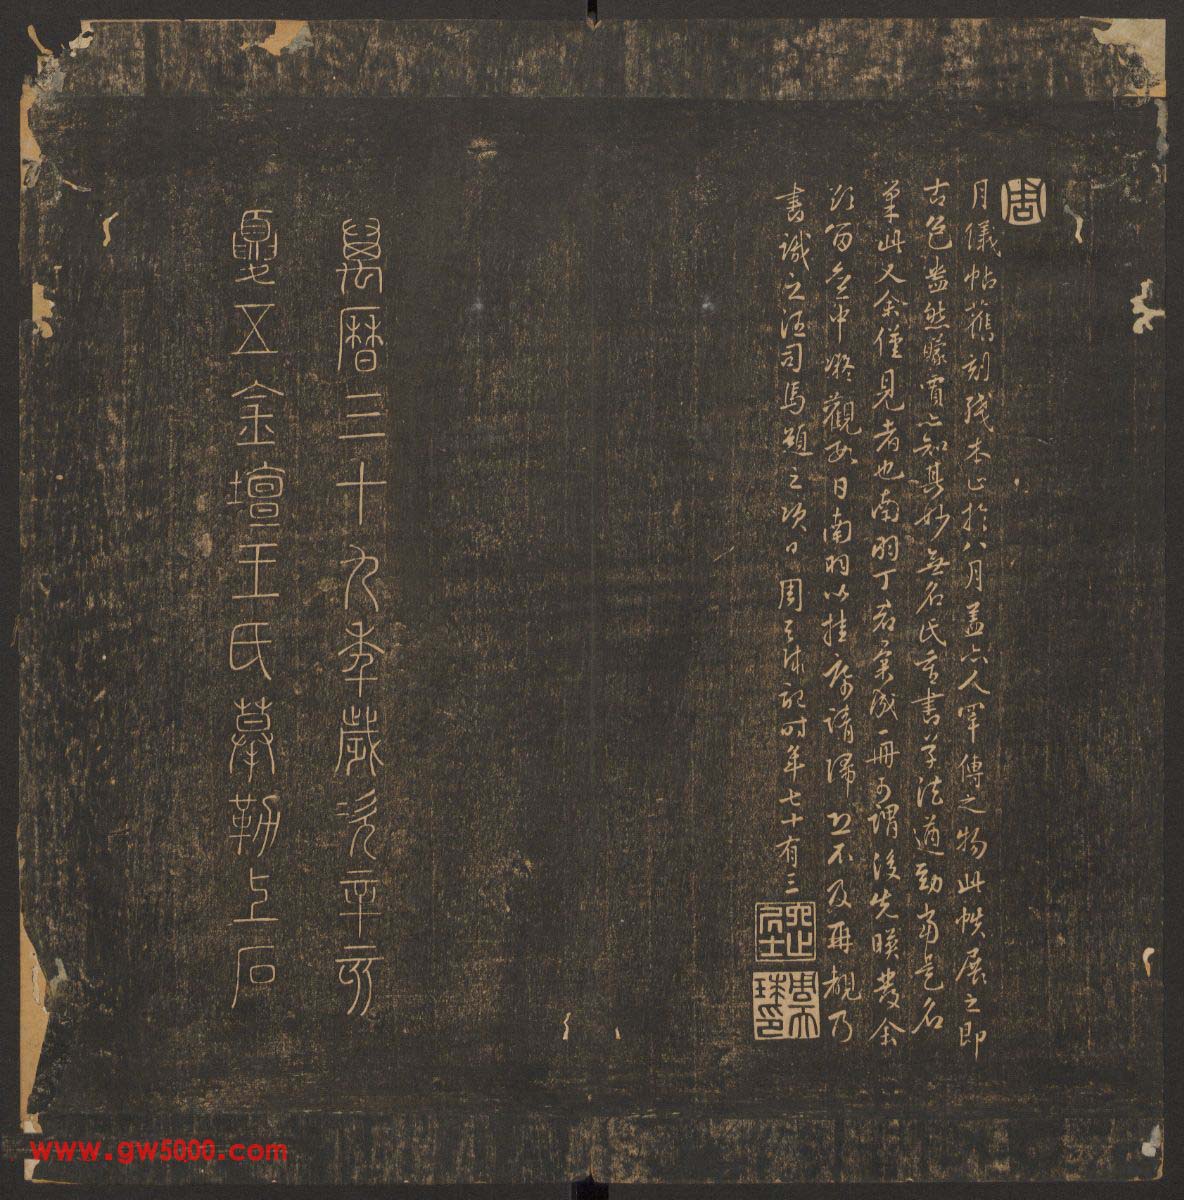 周
月儀帖舊刻殘本止於八月蓋亦人罕傳之物此帙展之即
古色盎然矇瞶亦知其妙無名氏章書草法遒勁當是名
筆此又余僅見者也南羽丁君彙成一冊可謂後先暎發余
留中觀日南羽以挂席請歸恐不及再覩乃
書識之汪司馬題之次日周天球記時年七十有三
六止居士
周天球印
萬曆三十九年歲次辛亥
夏五金壇王氏摹勒上石
www.gw5000.com